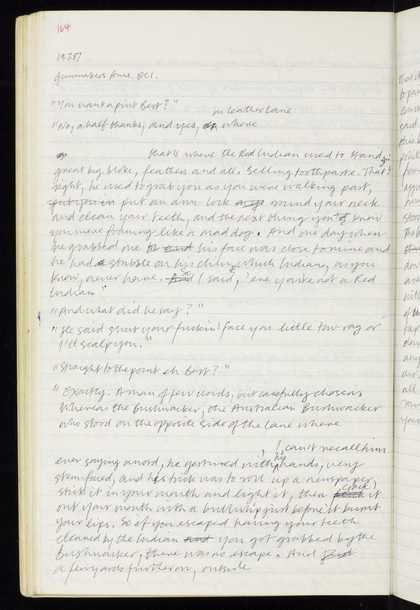 164
1935?
Gunmakers Arms. EC1.
"You want a pint Bert?"
in Leather Lane
"No, a half thanks, and yes, where
that's where the Red Indian used to stand,
great big bloke, feathers and all. Selling toothpaste. That's
right, he used to grab you as you were walking past,
put an arm lock round your neck
and clean your teeth, and the next thing you'd know
you were foaming like a mad dog. And one day when
he grabbed one his face was close to mine and
he had stubble on his chin, which Indians, as you
know, never have. So I said, 'ere you're not a Red
Indian"
"And what did he say?"
"He said shut your fuckin' face you little tow rag or
I'd scalp you."
"Straight to the point eh Bert?"
"Exactly. A man of few words, but carefully chosen.
Whereas the Bushwacker, the Australian Bushwacker
who stood on the opposite side of the lane where
I can't recall him
ever saying a word, he gestured with his hands, very
stern faced, and his trick was to roll up a newspaper
stick it in your mouth and light it, then crack it
out your mouth with a bullwhip just before it burnt
your lips. So if you escaped having your teeth
cleaned by the Indian you got grabbed by the
Bushwacker, there was no escape. And
a few yards further on, outside